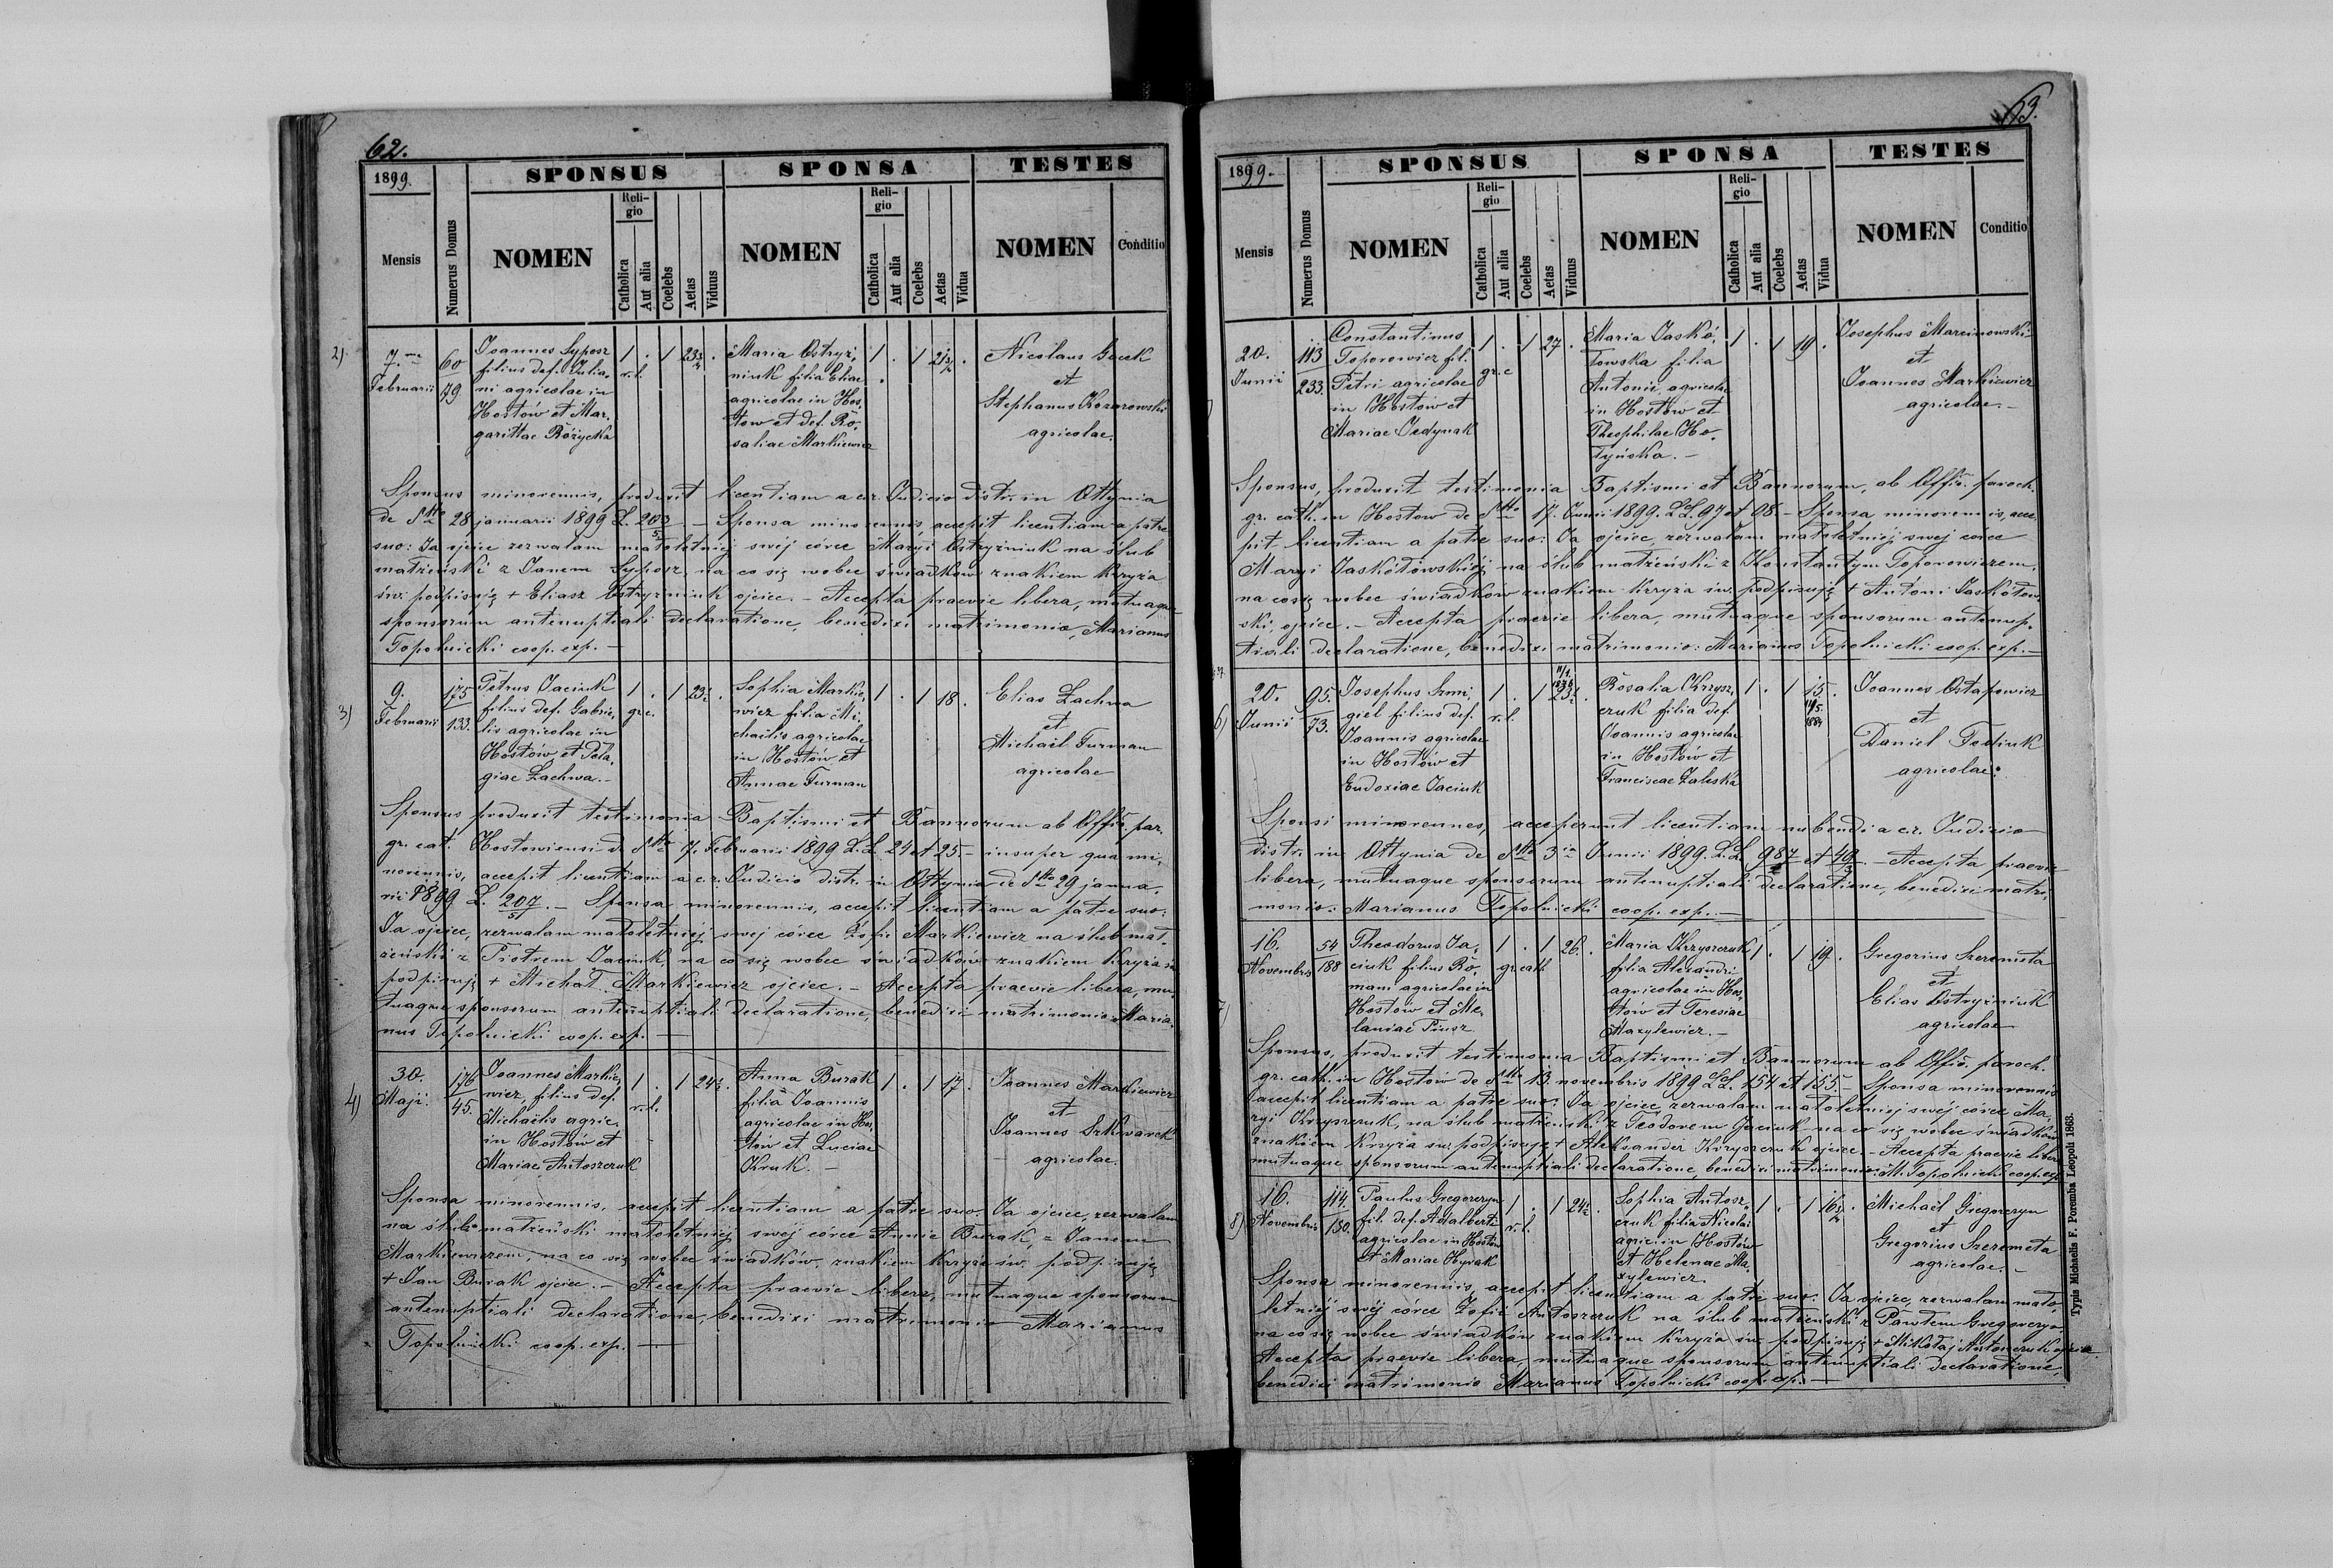 62.
1899.
SPONSUS
SPONSA
TESTES
Mensis
Numerus Domus
NOMEN
Reli-
gio
Catholica
Aut alia
Coelebs
Aetas
Viduus
NOMEN
Reli-
gio
Catholica
Aut alia
Coelebs
Aetas
Vidua
NOMEN
Conditio
2).
7.
Februarii
60
79
Joannes Syposz
filius def. Julia,
ni agricolae in
Hostów et Mar,
garittae Różycka
1 . 1 23½ .
r.l.
Maria Ostryż,
niuk filia Eliae
agricolae in Hos,
tow et def. Ro,
saliae Markiewicz
1 . 1
Nicolaus Gacek
et
Stephanus Kozarowski
agricolae.
Sponsus minorennis, produxit licentiam a c.r. Judicio distr. in Ottynia
de dtto 28 januarii 1899 L. 203/5 – Sponsa minorennis, accepit licentiam a patre
suo: Ja ojciec zezwalam małoletniej swéj córce Maryi Ostryżniuk na ślub
małżeński z Janem Syposz, na co się wobec świadków znakiem krzyża
św: podpisuję + Eliasz Ostryżniuk ojciec. – Accepta praevie libera, mutuaque
sponsorum antenuptiali declaratione, benedixi matrimonio, Marianus
Topolnicki coop. exp. –
3)
9.
Februarii
175
133.
Petrus Jaciuk
filius def. Gabrie,
lis agricolae in
Hostów et Pela,
giae Zachwa. –
1 . 1 23½ .
gr.c.
Sophia Markie,
wicz filia Mi,
chaëlis agricolae
in Hostów et
Annae Furman
1 . 1 18 .
Elias Zachwa
et
Michaël Furman
agricolae
Sponsus produxit testimonia Baptismi et Bannorum ab Offic. par.
gr. cat. Hostowiensi d. dtto 7. Februarii 1899 L.L. 24 et 25. – insuper qua mi,
norennis, accepit licentiam a c.r. Judicio distr. in Ottynia de dtto 29 janua,
rii 1899 L. 207/5. – Sponsa minorennis, accepit licentiam a patre suo:
Ja ojciec, zezwalam małoletniej swej córce Zofii Markiewicz na ślub mał,
żeński z Piotrem Jaciuk, na co się wobec świadków znakiem krzyża św
podpisuję + Michał Markiewicz ojciec. – Accepta praevie libera, mu,
tuaque sponsorum antenuptiali declaratione, benedixi matrimonio Maria,
nus Topolnicki coop. exp. –
4)
30.
Maji.
176
45.
Joannes Markie,
wicz, filius def.
Michaëlis agric.
in Hostów et
Mariae Antoszczuk
1 . 1 24½ .
r.l.
Anna Burak
filia Joannis
agricolae in Hos,
tów et Luciae
Kruk. –
1 . 1 17 .
Joannes Markiewicz
et
Joannes Szkwarek
agricolae.
Sponsa minorennis, accepit licentiam a patre suo. Ja ojciec, zezwalam
na ślub małżeński małoletniej swéj córce Annie Burak, z Janem
Markiewiczem, na co się wobec świadków znakiem krzyża św. podpisuję
+ Jan Burak ojciec. – Accepta praevie libera, mutuaque sponsorum
antenuptiali declaratione, benedixi matrimonio Marianus
Topolnicki coop. exp. –
63.
1899.
SPONSUS
SPONSA
TESTES
Mensis
Numerus Domus
NOMEN
Reli-
gio
Catholica
Aut alia
Coelebs
Aetas
Viduus
NOMEN
Reli-
gio
Catholica
Aut alia
Coelebs
Aetas
Vidua
NOMEN
Conditio
20.
Junii
113
233.
Constantinus
Toporowicz fil.
Petri agricolae
in Hostów et
Mariae Dedynak
1 . 1 27 .
gr.c
Maria Jaskó,
łowska filia
Antonii agricolae
in Hostów et
Theophilae Ho,
łyńska. –
1 . 1 19 .
Josephus Marcinowski
et
Joannes Markiewicz
agricolae. –
Sponsus, produxit testimonia Baptismi et Bannorum, ab Offic. paroch.
gr. cath. in Hostow de dtto 17. Junii 1899. LL. 97 et 98 – Sponsa minorennis, acce,
pit licentiam a patre suo: Ja ojciec zezwalam małoletniej swej córce
Maryi Jaskółowskiéj na ślub małżeński z Konstantym Toporowiczem,
na co się wobec świadków znakiem krzyża św. podpisuję + Antoni Jaskółow,
ski, ojciec. – Accepta praevie libera, mutuaque sponsorum antenup,
tiali declaratione, benedixi matrimonio: Marianus Topolnicki coop. exp. –
6)
20.
Junii
95.
73.
Josephus Szmi,
giel filius def.
Joannis agricolae
in Hostów et
Eudoxiae Jaciuk
1 . 1 23½ .
r.l.
Rosalia Krzysz,
czuk filia def.
Joannis agricolae
in Hostów et
Franciscae Zaleska
1 . 1 15.
1884
Joannes Ostapowicz
et
Daniel Fediuk
agricolae.
Sponsi minorennes, acceperunt licentiam nubendi a c.r. Judicio
distr. in Ottynia de dtto 3 Junii 1899. L.L. 987 et 49 – Accepta praevie
libera, mutuaque sponsorum antenuptiali declaratione, benedixi matri,
monio: Marianus Topolnicki coop. exp. –
7)
16.
Novembris
54
188
Theodorus Ja,
ciuk filius Ro,
mani agricolae in
Hostów et Me,
laniae Piusz
1 . 1 26 .
gr.cath
Maria Krzyszczuk
filia Alexandri
agricolae in Hos,
tów et Teresiae
Mazylewicz. –
1 . 1 19 .
Gregorius Szeremeta
et
Elias Ostryżniuk
agricolae
Sponsus, produxit testimonia Baptismi et Bannorum ab Offic. paroch.
gr. cath. in Hostów de dtto 13. novembris 1899 LL. 154 et 155. – Sponsa minorennis
accepit licentiam a patre suo: Ja ojciec zezwalam małoletniej swéj córce Ma,
ryi Krzyszczuk, na ślub małżeński z Teodorem Jaciuk na co się wobec świadków
znakiem krzyża św. podpisuję + Aleksander Krzyszczuk ojciec. – Accepta praevie libera
mutuaque sponsorum antenuptiali declaratione, benedixi matrimonio: M. Topolnicki coop. exp.
8)
16.
Novembris
114.
150.
Paulus Gregoreryn
fil. def. Adalberti
agricolae in Hostów
et Mariae Hyrak
1 . 1 24½ .
r.l.
Sophia Antosz,
czuk filia Nicolai
agric. in Hostów
et Helenae Ma,
zylewicz.
1 . 1 16 .
Michaël Gregoreryn
et
Gregorius Szeremeta
agricolae. –
Sponsa minorennis, accepit licentiam a patre suo: Ja ojciec, zezwalam mało,
letniéj swéj córce Zofii Antoszczuk na ślub małżeński z Pawłem Gregoreryn,
na co się wobec świadków znakiem krzyża św. podpisuję + Mikołaj Antoszczuk ojciec
Accepta praevie libera, mutuaque sponsorum antenuptiali declaratione,
benedixi matrimonio Marianus Topolnicki coop. exp. –
Typis Michaelis F. Poremba Leopoli 1868.